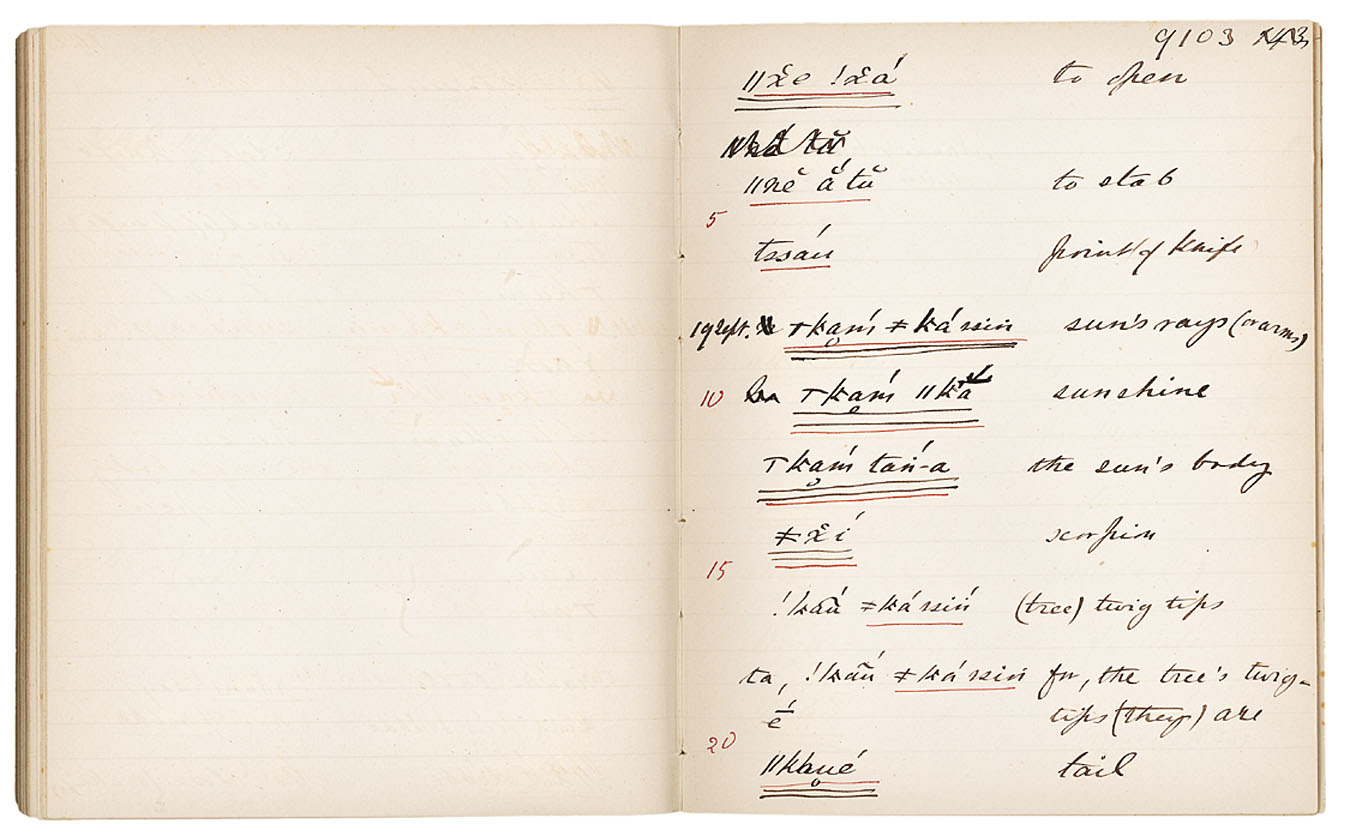 9103
ǁx̌e !x̌á to open
ǁně ǎ́ tŭ to stab
5
tssáṅ point of knife
19 Sept. ⊤k̥aḿ ǂká ssiṅ sun's rays (or arms)
10 ⊤k̥aḿ ǁkā sunshine
⊤k̥aḿ tań-a the sun's body
ǂx̌í scorpion
15
!kaū́ ǂká ssiṅ́ (tree) twig tips
ta, !kaū́ ǂká ssiṅ for, the tree's twig-
é tips (they) are
20
ǁkhu̥é tail